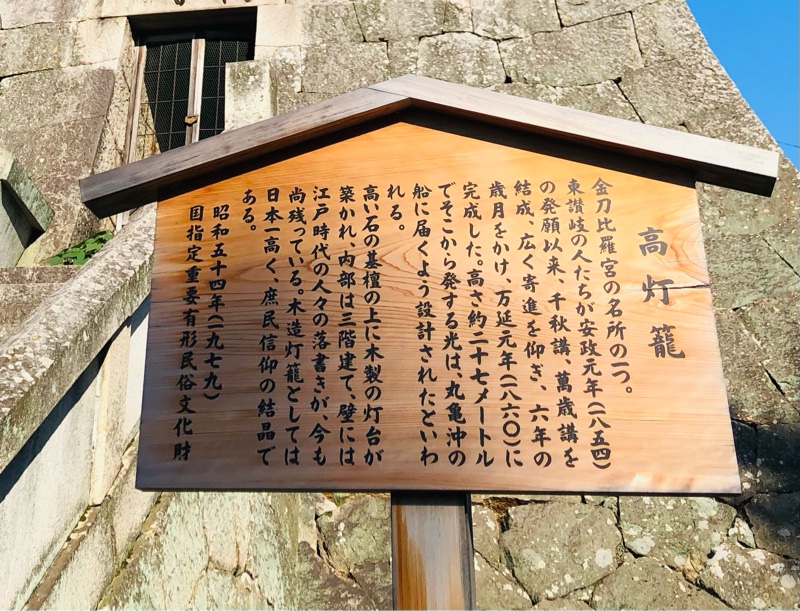 高灯籠
金刀比羅宮の名所の一つ。
東讃岐の人たちが安政元年（一八五四）
の発願以来、千秋講、萬歳講を
結成、広く寄進を仰ぎ、六年の
歳月をかけ、万延元年（一八六〇）に
完成した。高さ約二十七メートル
でそこから発する光は、丸亀沖の
船に届くよう設計されたといわ
れる。
高い石の基檀の上に木製の灯台が
築かれ、内部は三階建て、壁には
江戸時代の人々の落書きが、今も
尚残っている。木造灯籠としては
日本一高く、庶民信仰の結晶で
ある。
昭和五十四年（一九七九）
国指定重要有形民俗文化財